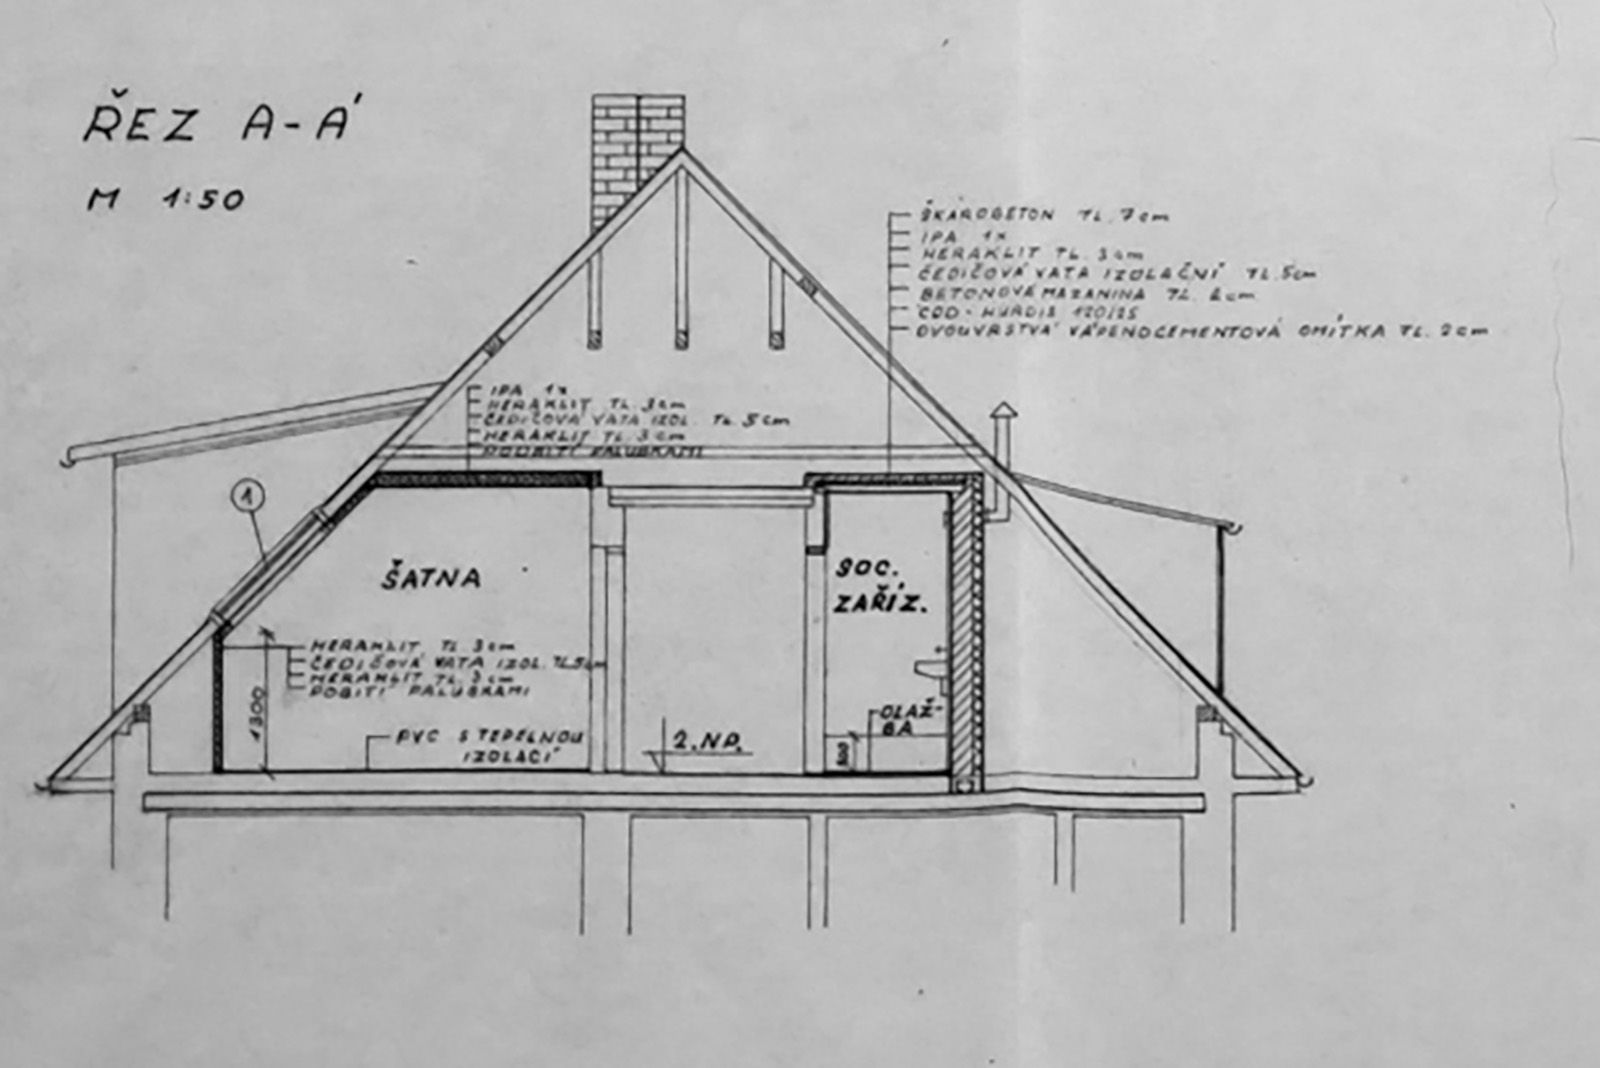 ŘEZ A-A'
M 1:50
ŠKÁROBETON TL. 7cm
IPA 1x
HERAKLIT TL. 3cm
ČEDIČOVÁ VATA IZOLAČNÍ TL. 5cm
BETONOVÁ MAZANINA TL. cm
HURDIS
DVOUVRSTVÁ VÁPENOCEMENTOVÁ OMÍTKA TL. 2cm
IPA 1x
HERAKLIT TL. 3cm
ČEDIČOVÁ VATA IZOL. TL. 5cm
HERAKLIT TL. 3cm
PODBITÍ PALUBKAMI
1
ŠATNA
SOC.
ZAŘÍZ.
HERAKLIT TL. 3cm
ČEDIČOVÁ VATA IZOL. TL. 5cm
HERAKLIT TL. 3cm
POBITÍ PALUBKAMI
1300
PVC S TEPELNOU
IZOLACÍ
2.NP.
DLAŽ-
BA